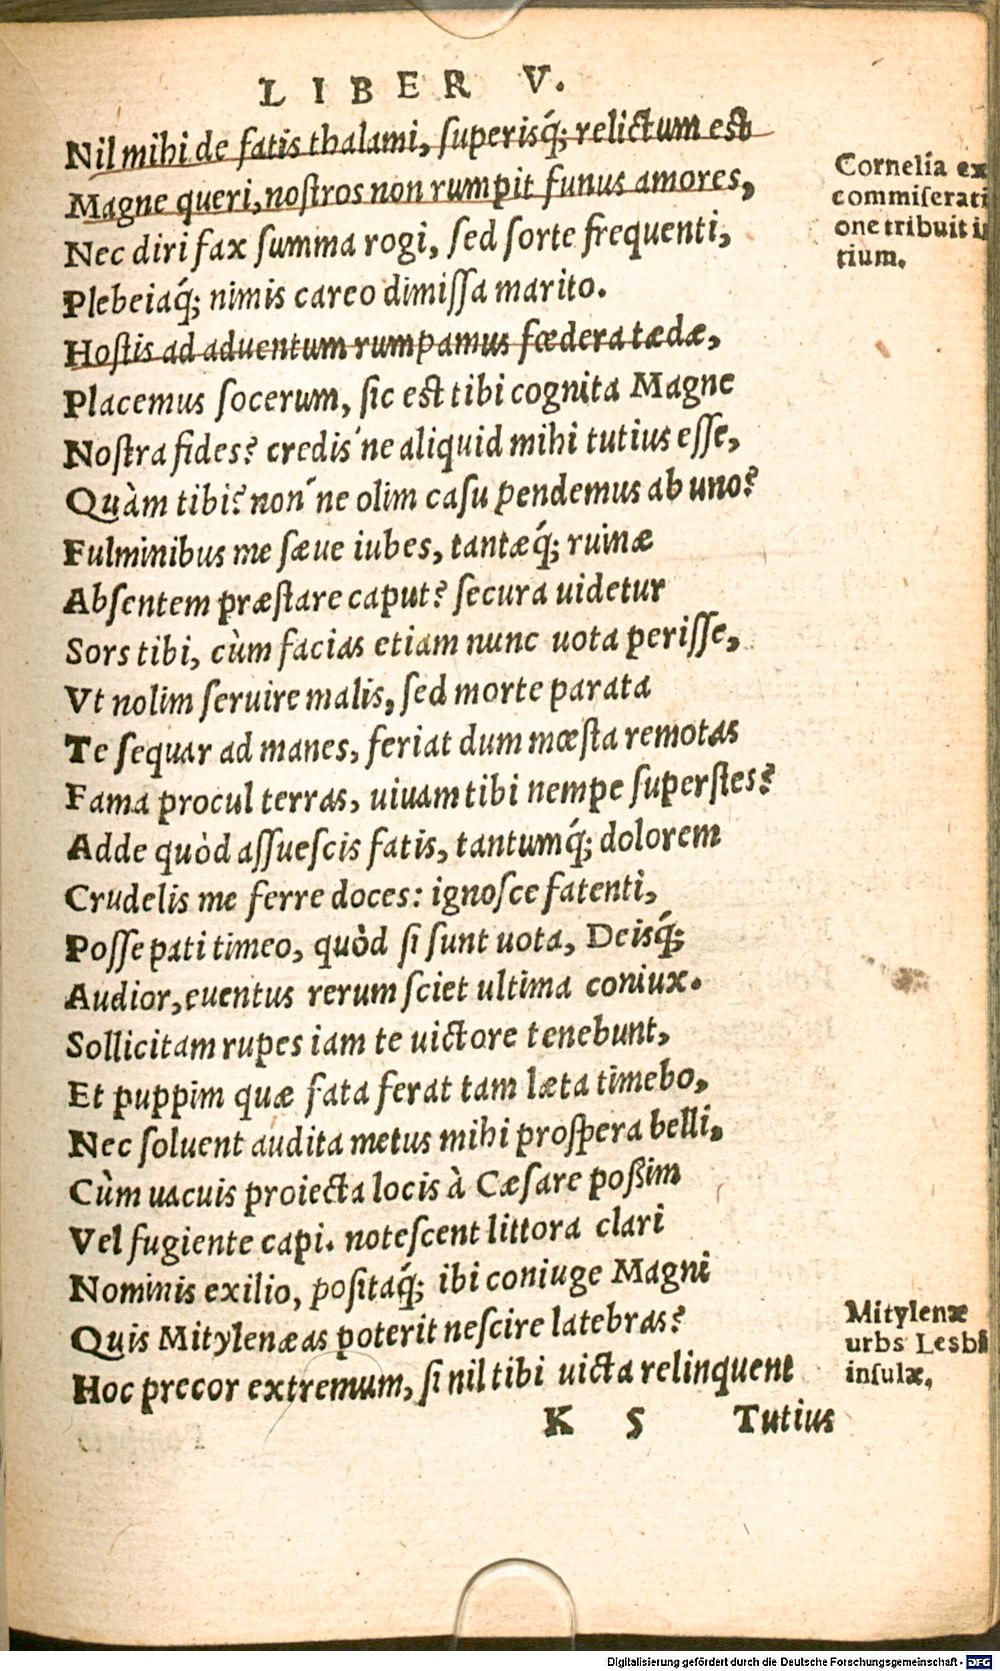 LIBER V.
Nil mihi de fatis thalami, ſuperisq́; relictum est
Magne queri, noſtros non rumpit funus amores,
Nec diri fax ſumma rogi, ſed ſorte frequenti,
Plebeiaq́; nimis careo dimiſſa marito.
Hoſtis ad aduentum rumpamus fœdera tædæ,
Placemus ſocerum, ſic est tibi cognita Magne
Noſtra fides? credis'ne aliquid mihi tutius eſſe,
Quàm tibi? non'ne olim caſu pendemus ab uno?
Fulminibus me ſæue iubes, tantæq́; ruinæ
Abſentem præſtare caput? ſecura uidetur
Sors tibi, cùm facias etiam nunc uota periſſe,
Vt nolim ſeruire malis, ſed morte parata
Te ſequar ad manes, feriat dum mœſta remotas
Fama procul terras, uiuam tibi nempe ſuperſtes?
Adde quòd aſſueſcis fatis, tantumq́; dolorem
Crudelis me ferre doces: ignoſce fatenti,
Poſſe pati timeo, quòd ſi ſunt uota, Deisq́;
Audior, euentus rerum ſciet ultima coniux.
Sollicitam rupes iam te uictore tenebunt,
Et puppim quæ fata ferat tam læta timebo,
Nec ſoluent audita metus mihi proſpera belli,
Cùm uacuis proiecta locis à Cæſare poßim
Vel fugiente capi. noteſcent littora clari
Nominis exilio, poſitaq́; ibi coniuge Magni
Quis Mitylenæas poterit neſcire latebras?
Hoc precor extremum, ſi nil tibi uicta relinquent
K 5 Tutius
Cornelia ex
commiſerati
one tribuit
tium.
Mitylenæ
urbs Lesbi
inſulæ,
Digitalisierung gefördert durch die Deutsche Forschungsgemeinschaft - DFG